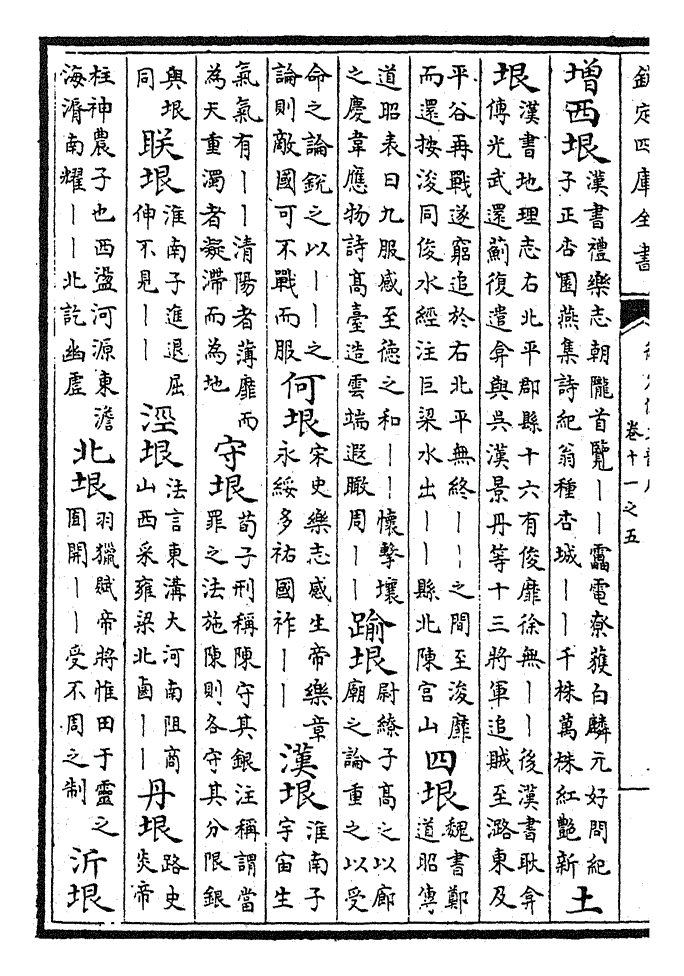 欽定四庫全書
卷十一之五
増西垠漢書禮樂志朝隴首覽｜｜靁電尞獲白麟元好問紀子正杏園燕集詩紀翁種杏城｜｜千株萬株紅艷新土
垠漢書地理志右北平郡縣十六有俊靡徐無｜｜後漢書耿弇傳光武還薊復遣弇與吳漢景丹等十三將軍追賊至潞東及
平谷再戰遂窮追於右北平無終｜｜之間至浚靡而還按浚同俊水經注巨梁水出｜｜縣北陳宮山四垠魏書鄭道昭傳
道昭表曰九服感至德之和｜｜懷擊壤之慶韋應物詩高臺造雲端遐瞰周｜｜踰垠尉繚子高之以廊廟之論重之以受
命之論銳之以｜｜之論則敵國可不戰而服何垠宋史樂志感生帝樂章永綏多祜國祚｜｜漢垠淮南子宇宙生
氣氣有｜｜清陽者薄靡而為天重濁者凝滯而為地守垠荀子刑稱陳守其銀注稱謂當罪之法施陳則各守其分限銀
與垠同眹垠淮南子進退屈伸不見｜｜涇垠法言東溝大河南阻商山西采雍梁北鹵｜｜丹垠路史炎帝
柱神農子也西盪河源東澹海漘南耀｜｜北訖幽虛北垠羽獵賦帝將惟田于靈之囿開｜｜受不周之制沂垠